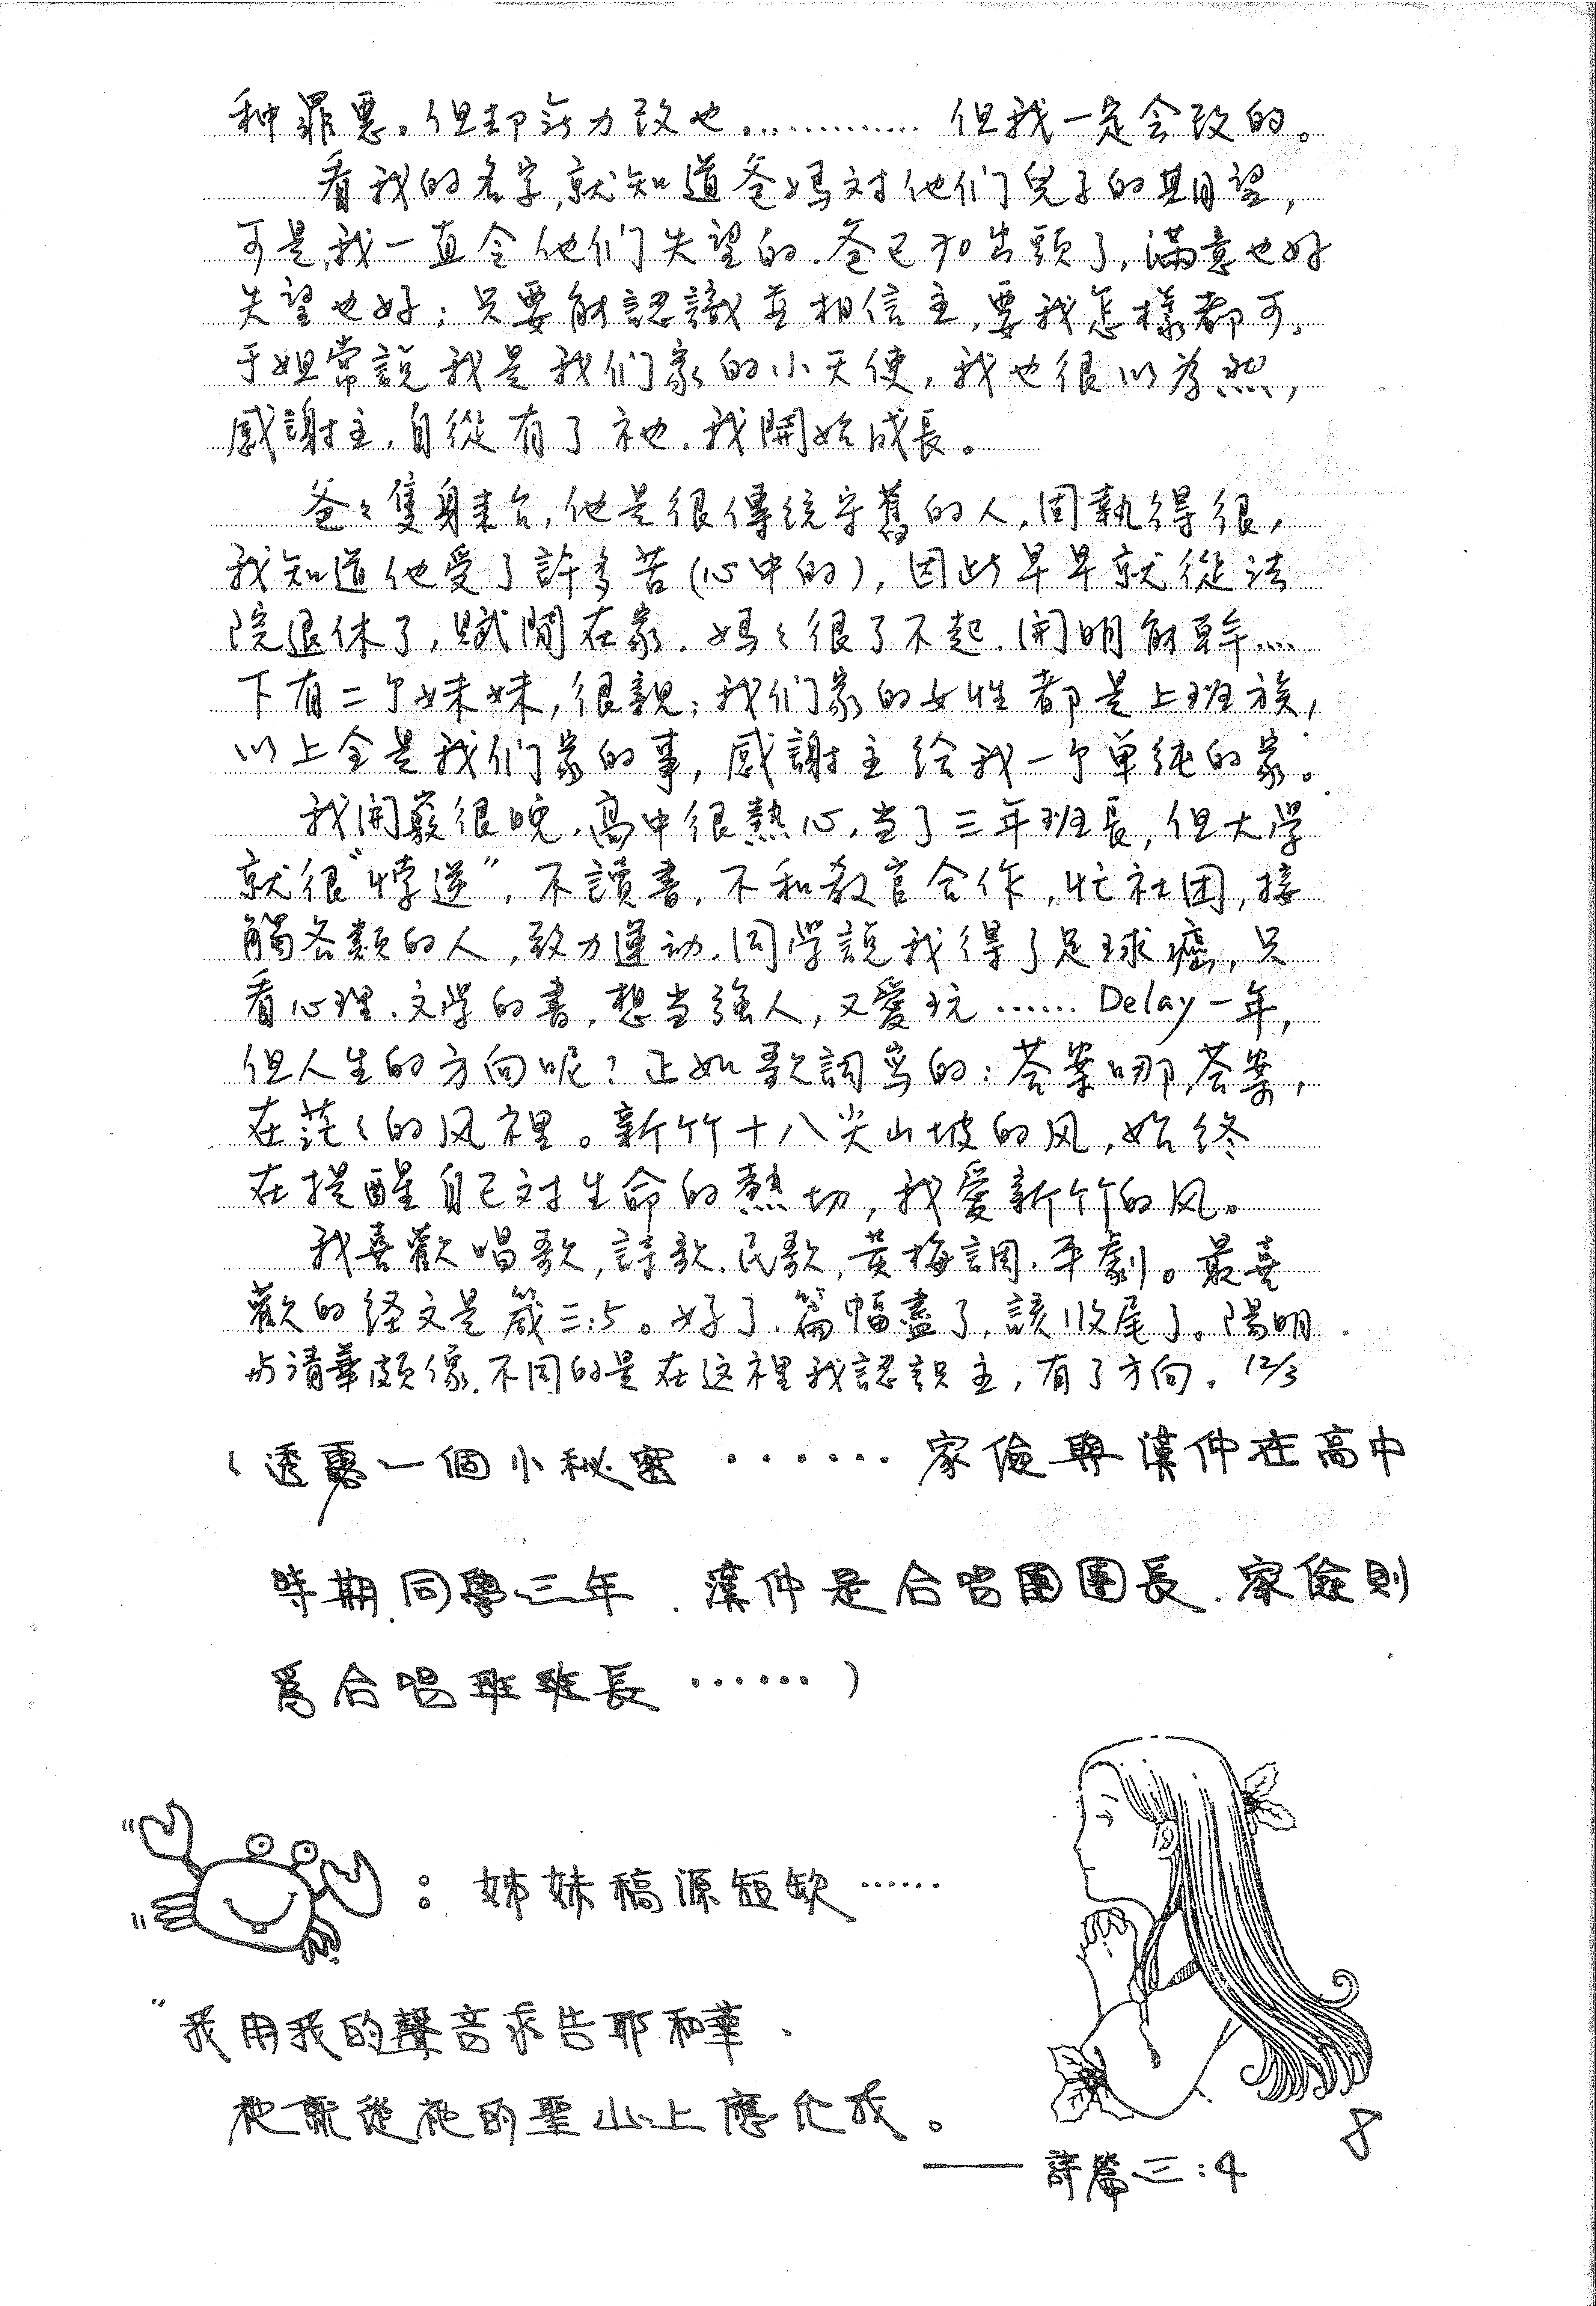 种罪惡。但却無力改也............. 但我一定会改的。
看我的名字,就知道爸媽对他们兒子的期望,
可是,我一直令他们失望的.爸已70出頭了,滿意也好
失望也好;只要能認識並相信主,要我怎樣都可。
于姐常說我是我们家的小天使,我也很以為然,
感謝主,自從有了祂.我開始成長。
爸々隻身来台,他是很傳統守舊的人,固執得很,
我知道他受了許多苦(心中的),因此早早就從法
院退休了,賦閒在家.媽々很了不起.開明能幹....
下有二个妹妹,很親;我们家的女性都是上班族,
以上全是我们家的事,感謝主给我一个单純的家。
我開竅很晚.高中很熱心,当了三年班長,但大学
就很“悖逆”,不讀書,不和教官合作,忙社团,接
觸各類的人,致力運动.同学說我得了足球癌,只
看心理.文学的書,想当強人,又愛玩......Delay一年,
但人生的方向呢?正如歌詞寫的:荅案哪,荅案,
在茫々的风裡。新竹十八尖山坡的风,始終
在提醒自己对生命的熱切,我愛新竹的风。
我喜歡唱歌,詩歌.民歌,黃梅調.平劇。最喜
歡的経文是箴三:5。好了.篇幅盡了.該收尾了。陽明
与清華頗像.不同的是在这裡我認识主,有了方向。12/3
(透露一個小秘密.......家儉與漢仲在高中
時期.同學三年.漢仲是合唱團團長.家儉則
為合唱班班長.......)
:姊妹稿源短缺......
"我用我的聲音求告耶和華、
祂就從祂的聖山上應允我。
——詩篇三:4
8